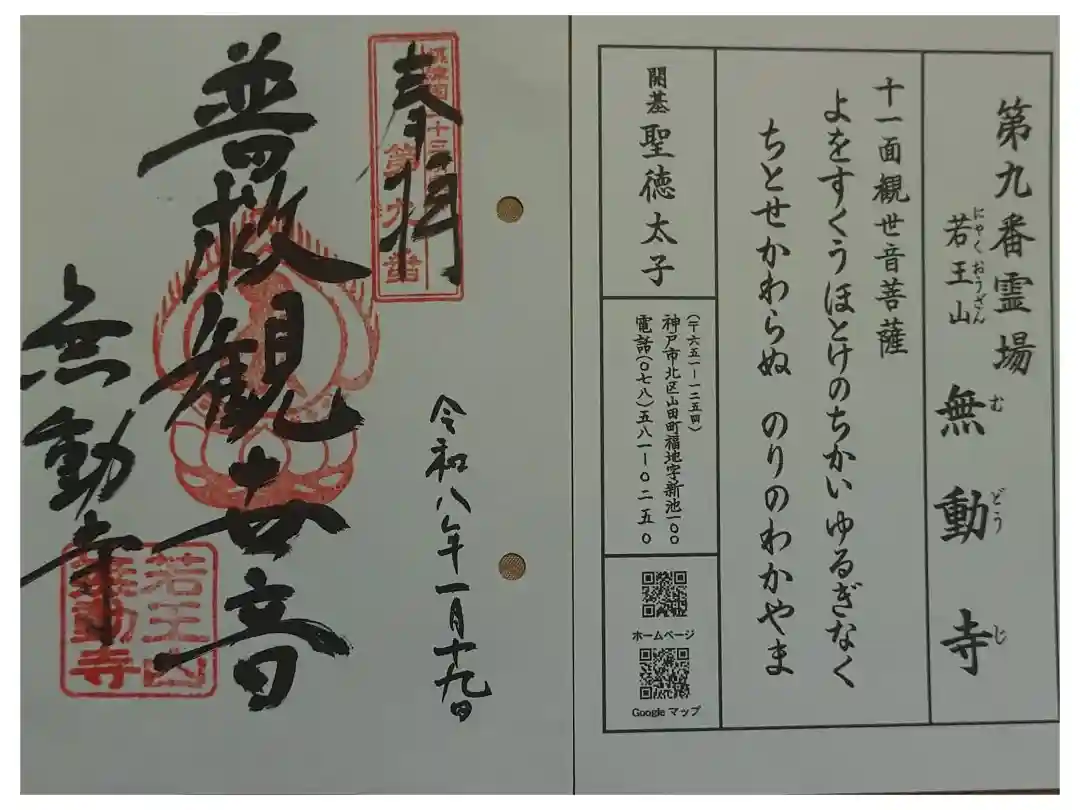 第九番霊場
若王山
にゃくおうざん
無動寺
むどうじ
十一面観世音菩薩
よをすくうほとけのちかいゆるぎなく
ちとせかわらぬ のりのわかやま
開基 聖徳太子
(〒六五一-一二五四)
神戸市北区山田町福地字新池一〇〇
電話(〇七八)五八一-〇二五〇
ホームページ
Google マップ
奉拝
第九番
令和八年一月十九日
普救観世音
無動寺
若王山
無動寺